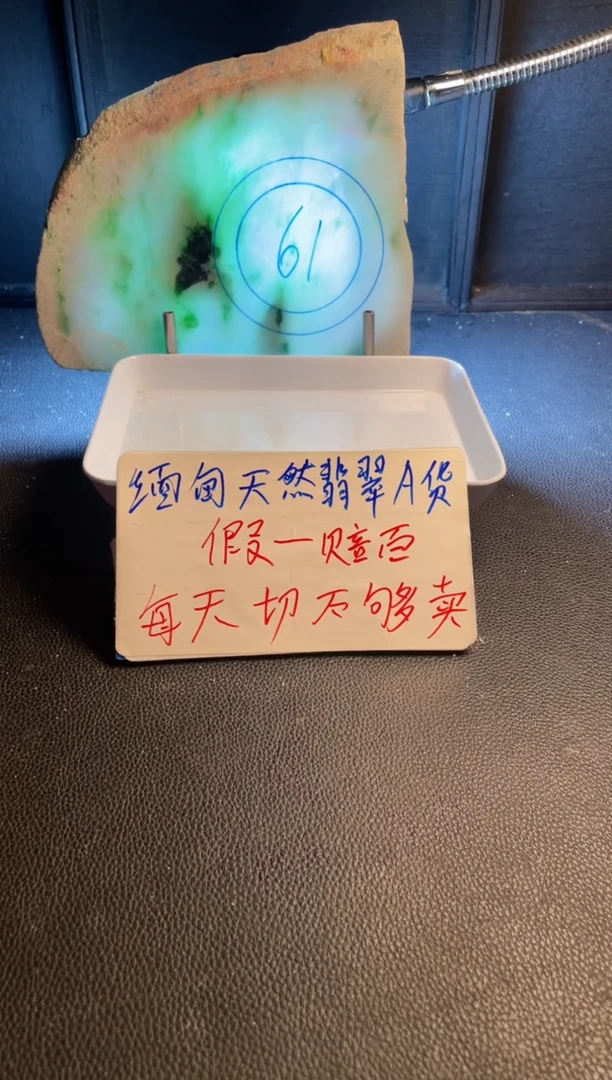 61
缅甸天然翡翠A货
假一赔百
每天切不够卖